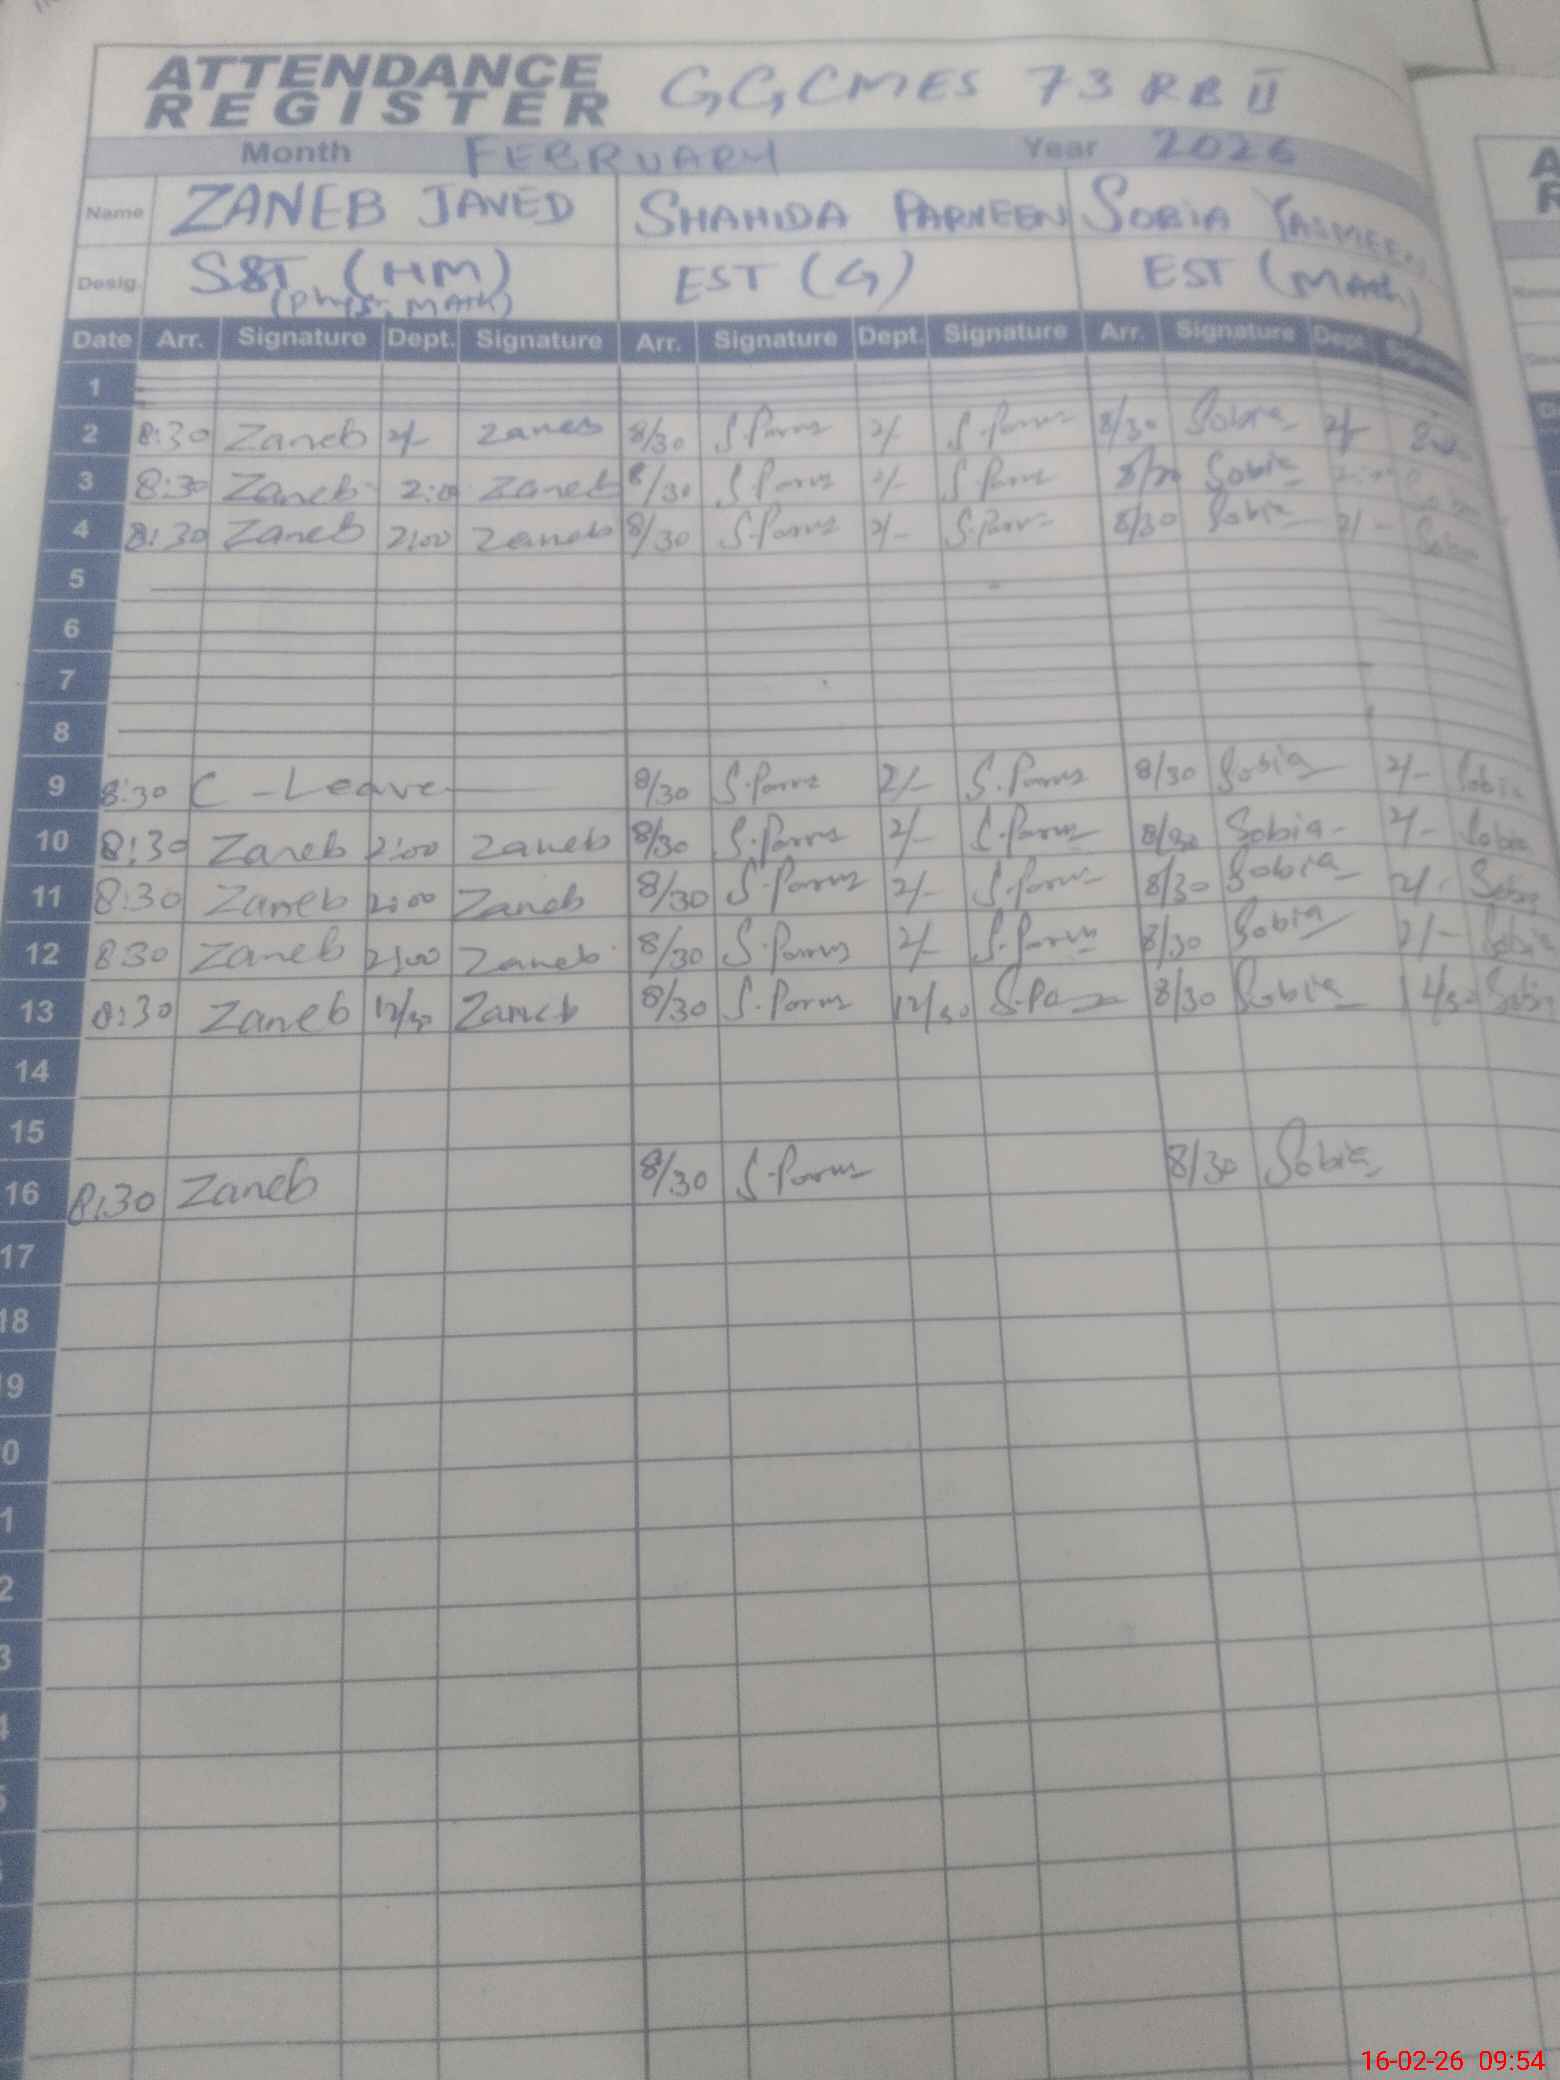 ATTENDANCE REGISTER GGCMES 73 RB II
Month FEBRUARY Year 2026
Name ZANEB JAVED SHAHIDA PARVEEN SOBIA YASMEEN
Desig. SST (HM) EST (G) EST (Math)
(Phys, Math)
Date Arr. Signature Dept. Signature Arr. Signature Dept. Signature Arr. Signature Dept.
1
2 8:30 Zaneb 2/- Zaneb 8/30 2/- 8/30 Sobia 2/-
3 8:30 Zaneb 2:00 Zaneb 8/30 2/- 8/30 Sobia
4 8:30 Zaneb 2:00 Zaneb 8/30 2/- 8/30 Sobia 2/- Sobia
5
6
7
8
9 8:30 C-Leave 8/30 2/- 8/30 Sobia 2/- Sobia
10 8:30 Zaneb 2:00 Zaneb 8/30 2/- 8/30 Sobia 2/- Sobia
11 8:30 Zaneb 2:00 Zaneb 8/30 2/- 8/30 Sobia 2/- Sobia
12 830 Zaneb 2:00 Zaneb 8/30 2/- 8/30 Sobia 2/- Sobia
13 8:30 Zaneb 12/30 Zaneb 8/30 12/30 8/30 Sobia Sobia
14
15
16 8:30 Zaneb 8/30 8/30 Sobia
17
18
9
0
1
2
3
4
5
16-02-26 09:54